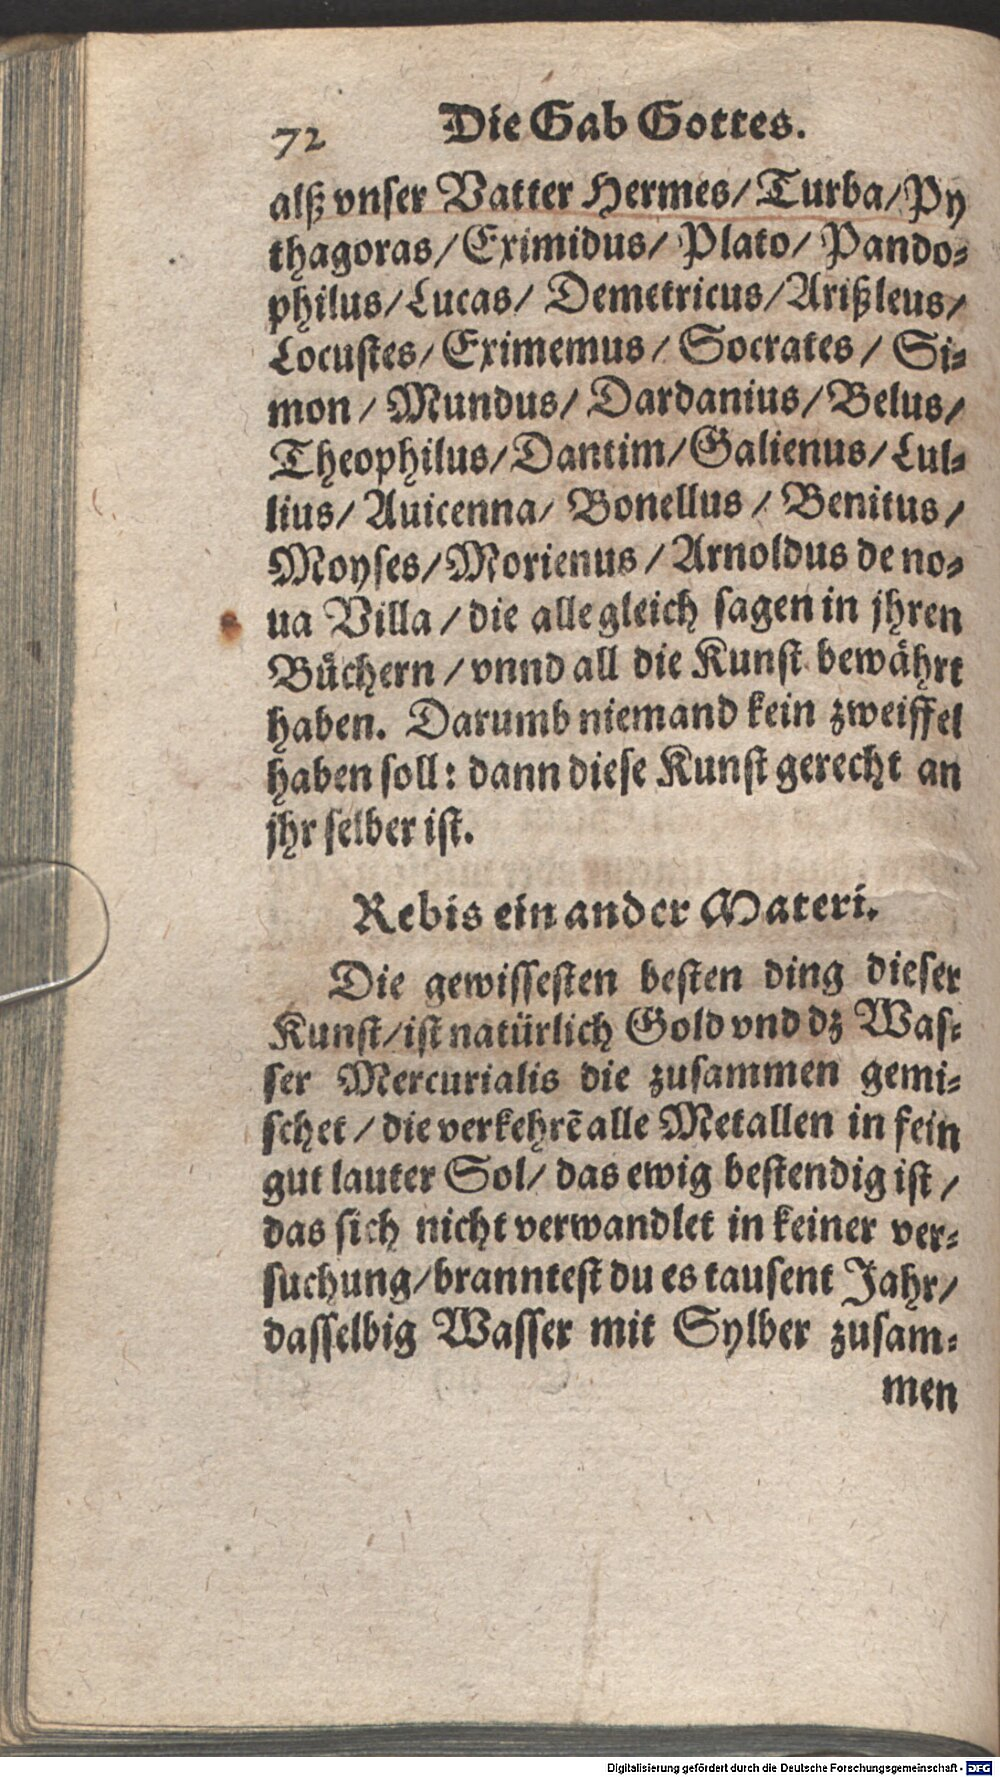 72 Die Gab Gottes.
alß vnser Vatter Hermes/Turba/Py
thagoras/Eximidus/ Plato/ Pando-
philus/Lucas/ Demetricus/Arißleus/
Locustes/ Eximemus/ Socrates/ Si-
mon/ Mundus/ Dardanius/Belus/
Theophilus/Dantim/Galienus/Lul-
lius/ Auicenna/ Bonellus/ Benitus/
Moyses/Morienus/Arnoldus de no-
ua Villa/die alle gleich sagen in jhren
Bůchern/vnnd all die Kunst bewåhrt
haben. Darumb niemand kein zweiffel
haben soll: dann diese Kunst gerecht an
jhr selber ist.
Rebis ein ander Materi.
Die gewissesten besten ding dieser
Kunst/ist natürlich Gold vnd dz Was-
ser Mercurialis die zusammen gemi-
schet/die verkehrē alle Metallen in fein
gut lauter Sol/ das ewig bestendig ist/
das sich nicht verwandlet in keiner ver-
suchung/branntest du es tausent Jahr/
dasselbig Wasser mit Sylber zusam-
men
Digitalisierung gefördert durch die Deutsche Forschungsgemeinschaft - DFG